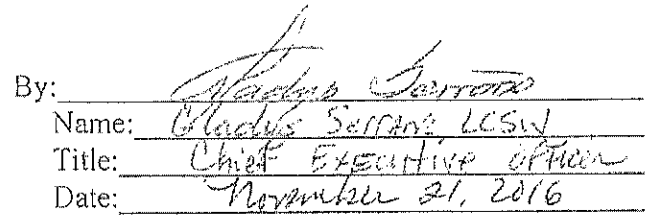 By: Gladys Serrano
Name: Gladys Serrano LCSW
Title: Chief Executive Officer
Date: November 21, 2016